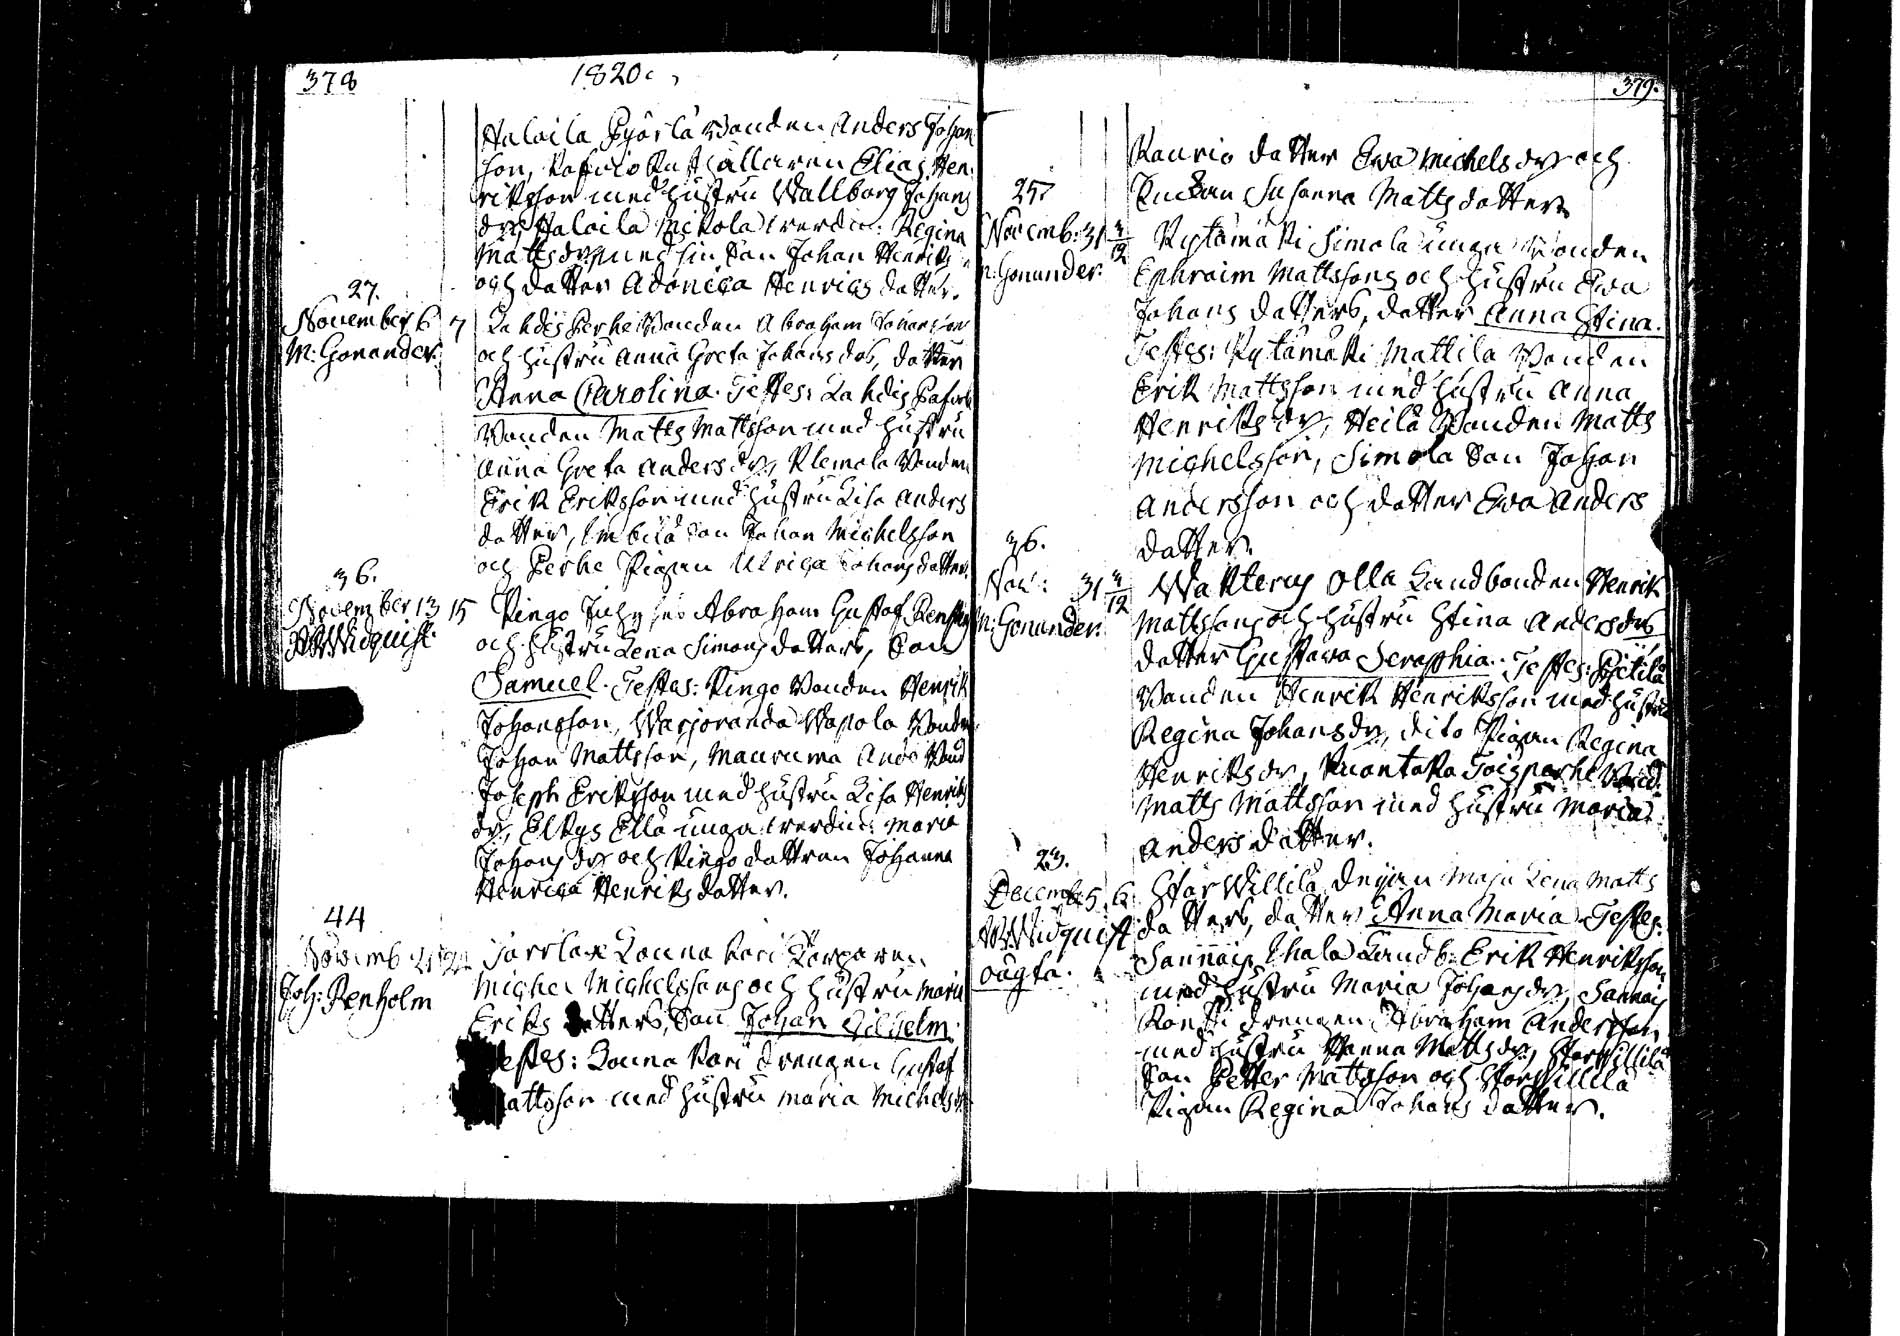 378
1820.
Haloila Pyörlä Bonden Anders Johan
son, Pafvio Rusthållaren Elias Hen
riksson med hustru Wallborg Johans
dr, Halaila Mikola werdin: Regina
Mattsdr med sin Son Johan Henriks
och datter Adonica Henrics datter.
27.
November 6 7
M: Gonander.
Lahdis Perhe Bonden Abraham Johansson
och hustru Anna Greta Johans drs, datter
Anna Carolina. Testes: Lahdis Pafvola
Bonden Matts Mattsson med hustru
Anna Greta Andersdr, Klemola Bonden
Erik Eriksson med hustru Lisa Anders
datter, Son Johan Michelsson
och Perhe Pigan Ulrica Johans datter.
36.
November 13 15
Widquist.
Ringo Abraham Gustaf
och hustru Lena Simons datters, Son
Samuel. Testes: Ringo Bonden Henrik
Johansson, Warjoranda Wapola Bonden
Johan Mattsson, Mauruma Bond
Joseph Eriksson med hustru Lisa Henriks
dr, Elkys Ella unga werdin: Maria
Johans dr och Ringo dattren Johanna
Henrica Henriks datter.
44
Novemb 21 24
Joh: Renholm
Sarrlax Lonna Kari Torparen
Michel Michelssons och hustru Maria
Eriks datters, Son Johan Wilhelm.
Testes: Lonna Kari drengen Gustaf
Mattsson med hustru Maria Michelsdr
379.
Kaurio datter Ewa Michels dr och
Susanna Matts datter
25.
Novemb: 31 3/12
M: Gonander.
Rytämäki Simola unga Bonden
Ephraim Mattssons och hustru Ewa
Johans datters, datter Anna Stina.
Testes: Rytämäki Mattila Bonden
Erik Mattsson med hustru Anna
Henriks dr, Heilä Bonden Matts
Michelsson, Simola Son Johan
Andersson och datter Ewa Anders
datter.
36.
Nov: 31 3/12
M: Gonander.
Olla Landbonden Henrik
Mattssons och hustru Stina Andersdrs
datter Gustava Seraphia. Testes:
Bonden Henrik Henriksson med hustru
Regina Johansdr, dito Pigan Regina
Henriksdr, Kuantaka Bond:
Matts Mattsson med hustru Maria
Anders datter.
23.
Decemb 5 6
Widquist
oägta.
Stor Willilä Deijan Maja Lena Matts
datters, datter Anna Maria. Testes:
Sannais Uhala Landb: Erik Henriksson
med hustru Maria Johans dr, Sannais
drengen Abraham Andersson
med hustru Hanna Mattsdr, Storwillilä
Son Petter Mattsson och Storwillilä
Pigan Regina Johans datter.